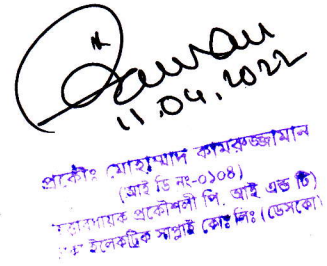 11.04.2022
প্রকৌঃ মোহাম্মাদ কামরুজ্জামান
(আই ডি নং-০১০৪)
প্রকৌশলী পি. আই এন্ড টি)
ইলেকট্রিক সাপ্লাই কোঃ লিঃ (ডেসকো)